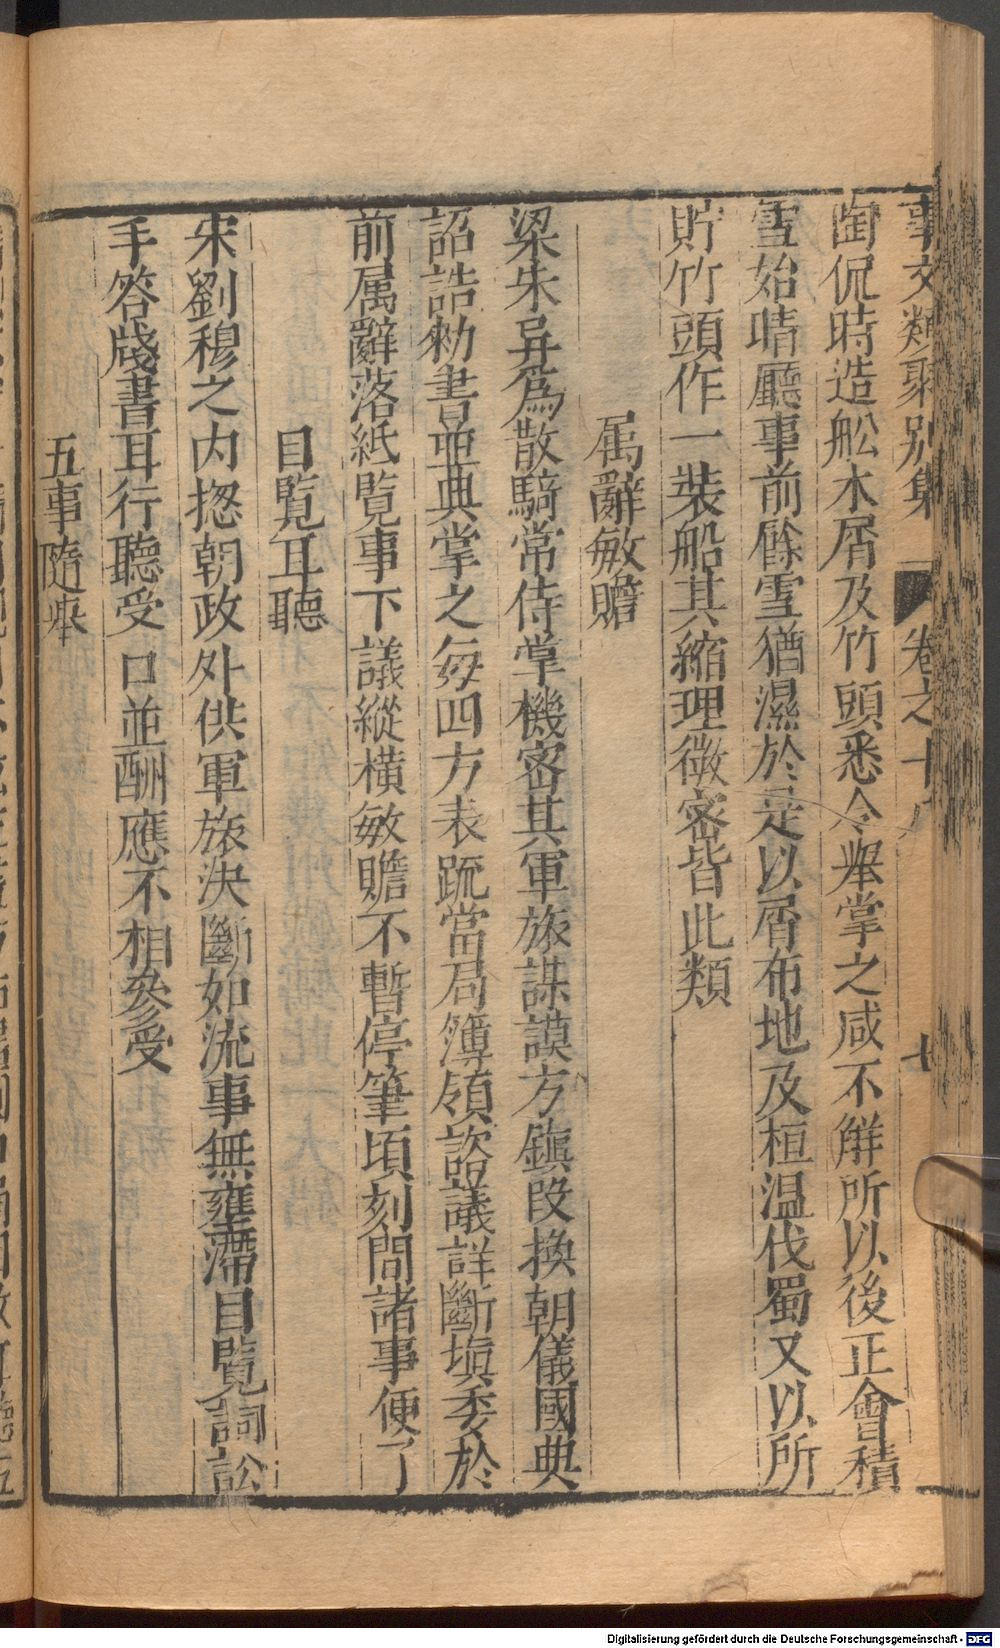 事文類聚別集 卷之十 七
陶侃時造舩木屑及竹頭悉令㪯掌之咸不觧所以後正會積
雪始晴廳事前餘雪猶濕於是以屑布地及桓温伐蜀又以所
貯竹頭作一裝船其縮理微密皆此類
属辭敏贍
梁朱异爲散騎常侍掌機密其軍旅謀謨方鎮段換朝儀國典
詔誥勑書並典掌之每四方表䟽當局簿領諮議詳斷塡委於
前属辭落紙覧事下議縱横敏贍不暫停筆頃刻間諸事便了
目覧耳聽
宋劉穆之内揔朝政外供軍旅決斷如流事無壅滯目覧詞訟
手答牋書耳行聽受口並酬應不相參受
五事隨㪯
Digitalisierung gefördert durch die Deutsche Forschungsgemeinschaft - DFG